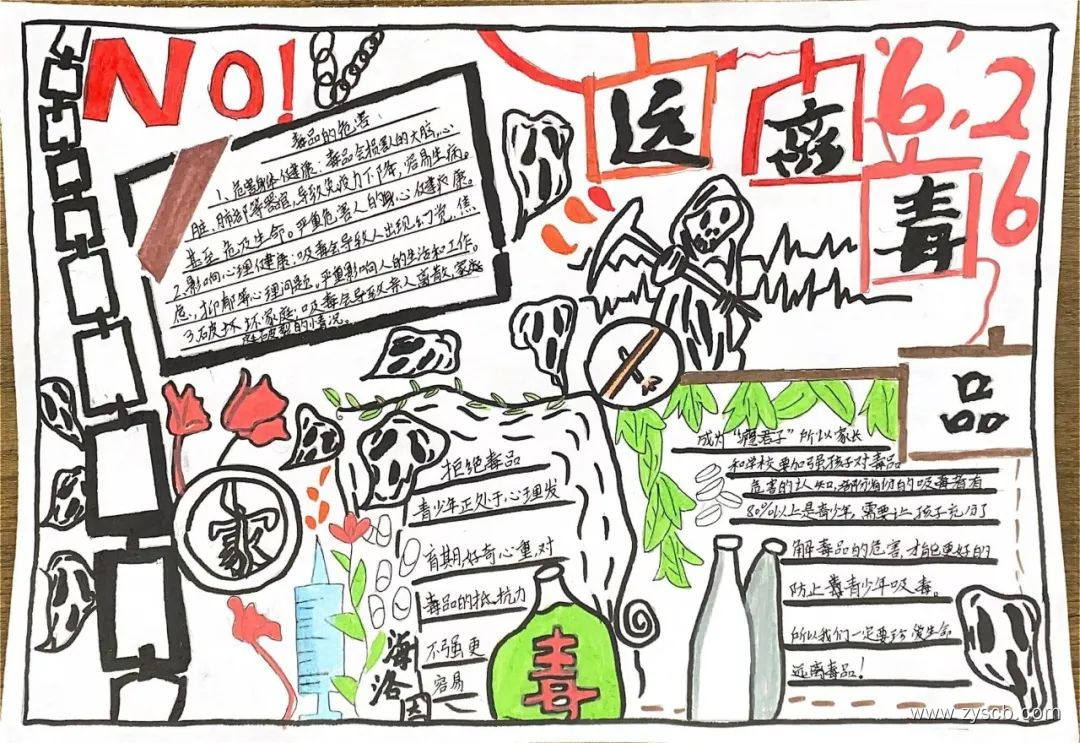 NO!
远
离
毒
品
6.26
毒品的危害:
1、危害身体健康:毒品会损害的大脑,心
脏、肺部等器官,导致免疫力下降,容易生病。
甚至危及生命。严重危害人的身心健康。
2.影响心理健康:吸毒会导致人出现幻觉,焦
虑,抑郁等心理问题。严重影响人的生活和工作。
3.破坏家庭:吸毒会导致亲人离散、家庭
破裂的情况。
家
拒绝毒品
青少年正处于心理发
育期,好奇心重,对
毒品的抵抗力
不强更
容易
海
洛
因
毒
成为“瘾君子”所以家长
和学校要加强孩子对毒品
危害的认知,
的吸毒者有
80%以上是青少年,需要让孩子充分了
解毒品的危害,才能更好的
防止青少年吸毒。
所以我们一定要珍爱生命
远离毒品!
www.zyscb.com